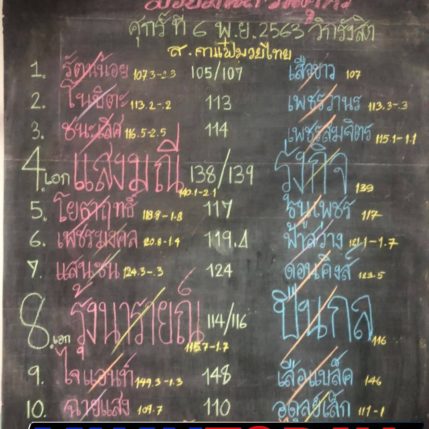 ศุกร์ ที่ 6 พ.ย. 2563 วิกรังสิต
ส.คาเฟ่มวยไทย
1. รัตน์น้อย 107.3-2.3 105/107 เสือขาว 107
2. โนบิตะ 113.2-.2 113 เพชรวานร 113.3-.3
3. ชนะเลิศ 116.5-2.5 114 เพชรสมจิตร 115.1-1.1
4.เอก แสงมณี 140.1-2.1 138/139 รุ่งกิจ 139
5. โยธาฤทธิ์ 118.8-1.8 117 ธนูเพชร 117
6. เพชรมงคล 120.8-1.4 119.4 ฟ้าสว่าง 121.1-1.7
7. แสนชน 124.3-.3 124 ดอนคิงส์ 123.5
8.เอก รุ่งนารายณ์ 115.7-1.7 114/116 ปืนกล 116
9. ไจแอนท์ 149.3-1.3 148 เสือแบล็ค 146
10. ฉายแสง 109.7 110 111-1